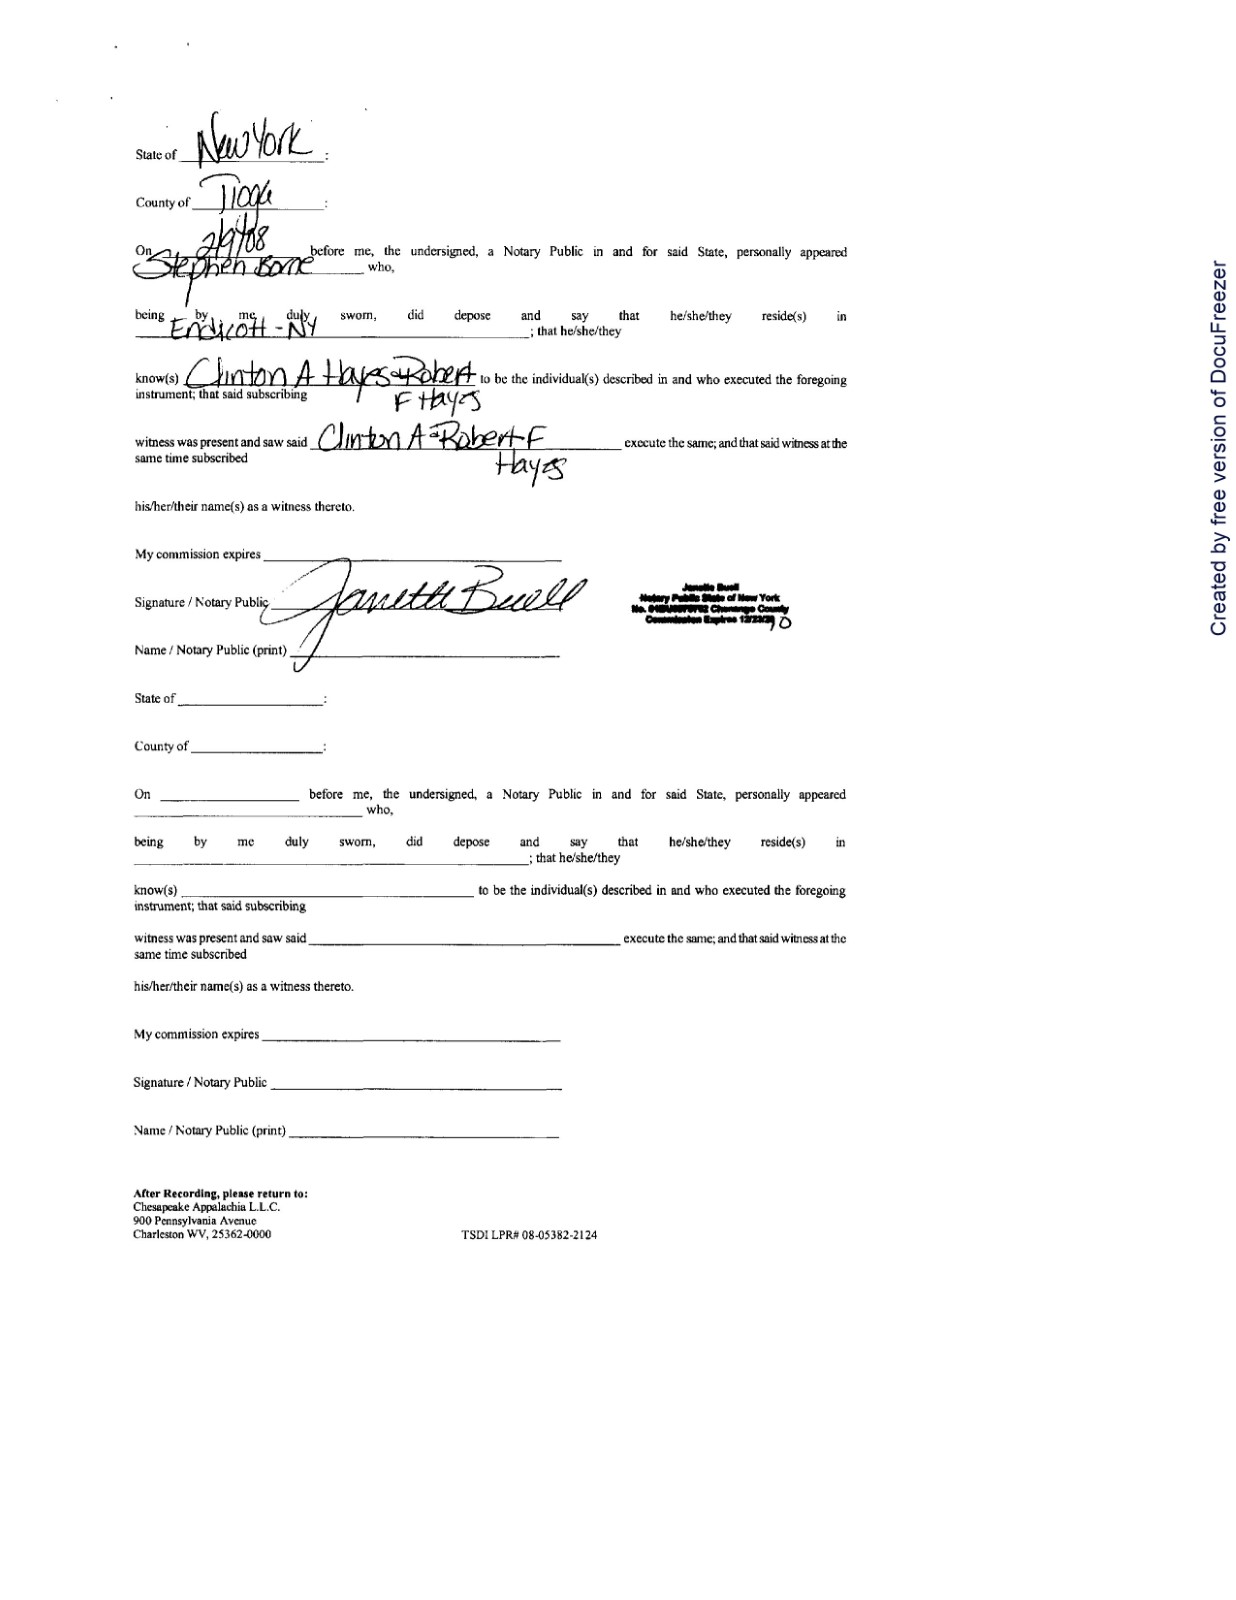 State of New York :
County of Tioga :
On 2/9/08 before me, the undersigned, a Notary Public in and for said State, personally appeared
Stephen who,
being by me duly sworn, did depose and say that he/she/they reside(s) in
Endicott - NY ; that he/she/they
know(s) Clinton A Hayes & Robert to be the individual(s) described in and who executed the foregoing
instrument; that said subscribing
F Hayes
witness was present and saw said Clinton A & Robert F execute the same; and that said witness at the
same time subscribed
Hayes
his/her/their name(s) as a witness thereto.
My commission expires
Signature / Notary Public Janette Buell
Janette Buell
Notary Public State of New York
No. Chenango County
Commission Expires
Name / Notary Public (print)
State of :
County of :
On before me, the undersigned, a Notary Public in and for said State, personally appeared
who,
being by me duly sworn, did depose and say that he/she/they reside(s) in
; that he/she/they
know(s) to be the individual(s) described in and who executed the foregoing
instrument; that said subscribing
witness was present and saw said execute the same; and that said witness at the
same time subscribed
his/her/their name(s) as a witness thereto.
My commission expires
Signature / Notary Public
Name / Notary Public (print)
After Recording, please return to:
Chesapeake Appalachia L.L.C.
900 Pennsylvania Avenue
Charleston WV, 25362-0000
TSDI LPR# 08-05382-2124
Created by free version of DocuFreezer